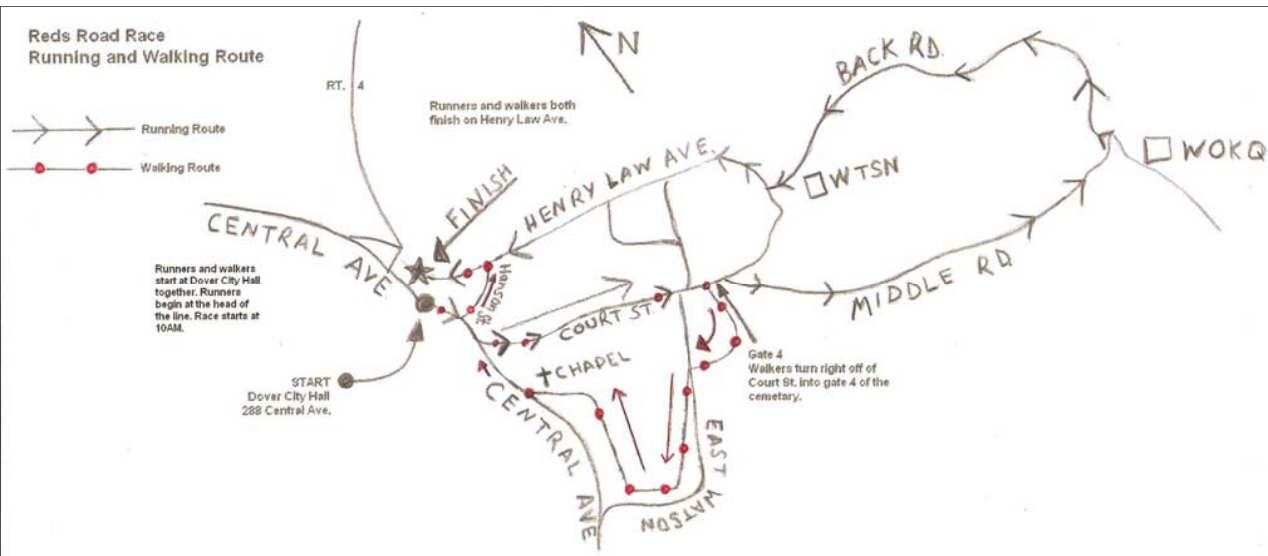 Reds Road Race
Running and Walking Route
Running Route
Walking Route
RT. 4
Runners and walkers both
finish on Henry Law Ave.
N
BACK RD.
WOKQ
WTSN
HENRY LAW AVE.
FINISH
CENTRAL AVE
Runners and walkers
start at Dover City Hall
together. Runners
begin at the head of
the line. Race starts at
10AM.
Hanson St.
COURT ST.
MIDDLE RD.
CHAPEL
START
Dover City Hall
288 Central Ave.
Gate 4
Walkers turn right off of
Court St. into gate 4 of the
cemetary.
CENTRAL AVE
EAST WATSON